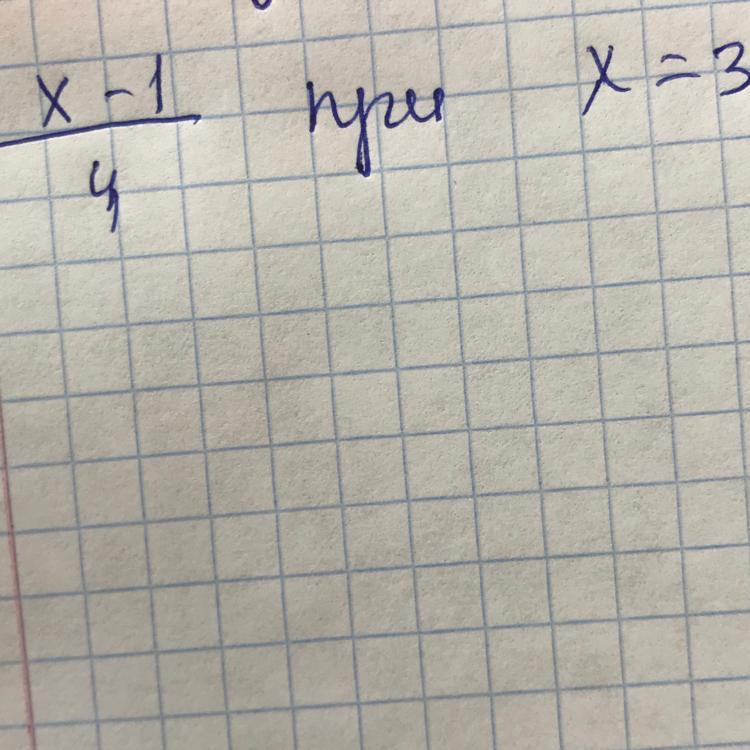 x - 1 при x = 3
4